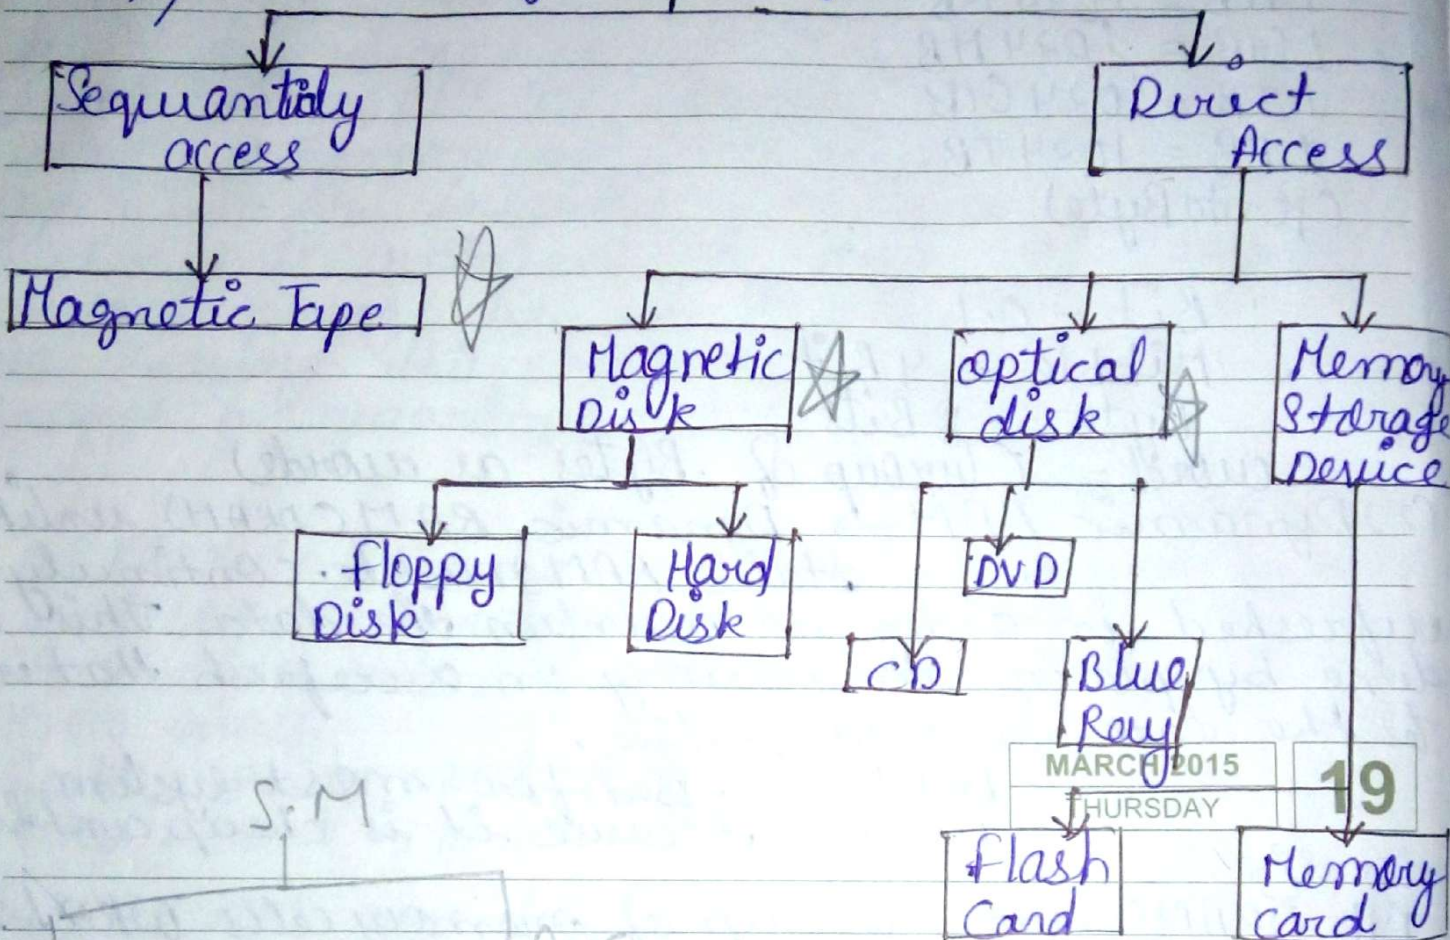 Sequantialy
access
Direct
Access
Magnetic Tape
Magnetic
Disk
optical
disk
Memory
Storage
Device
floppy
Disk
Hard
Disk
DVD
CD
Blue
Ray
MARCH 2015
THURSDAY
19
S.M
flash
Card
Memory
card